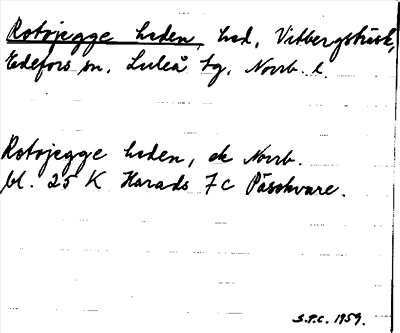 Rotojegge heden, hed, Vitbergsträsk,
Edefors sn. Luleå tg. Norrb. l.
Rotojegge heden, ek Norrb.
bl. 25 K Harads 7 c Påsskvare.
S.P.C. 1959.